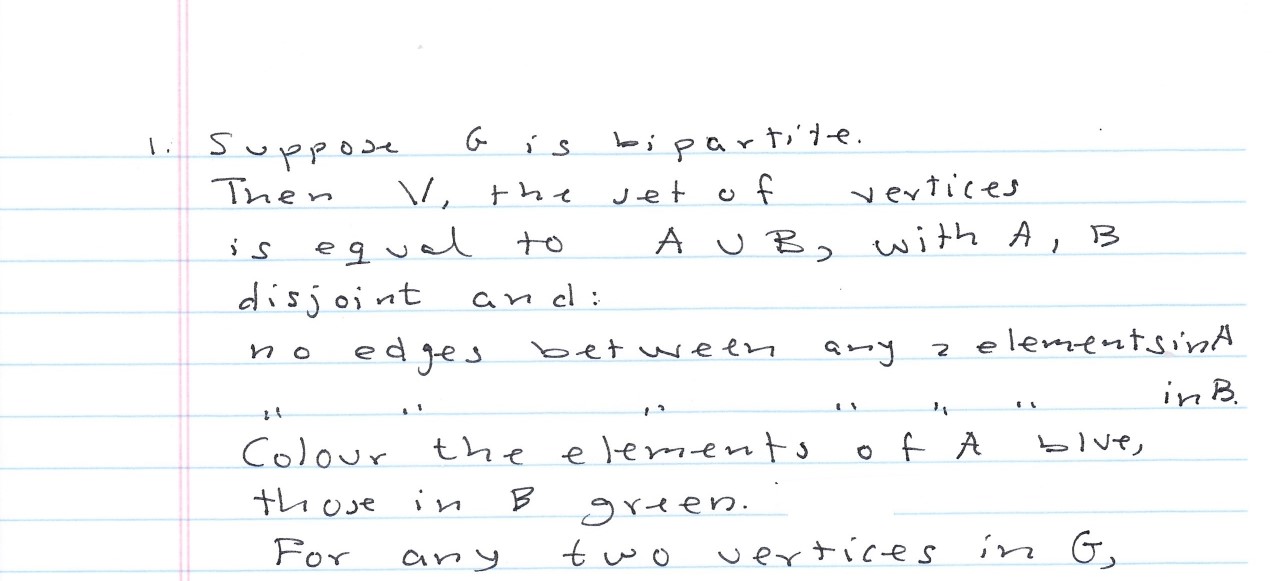 1. Suppose G is bipartite.
Then V, the set of vertices
is equal to A ∪ B, with A, B
disjoint and:
no edges between any 2 elements in A
" " " " " " in B.
Colour the elements of A blue,
those in B green.
For any two vertices in G,